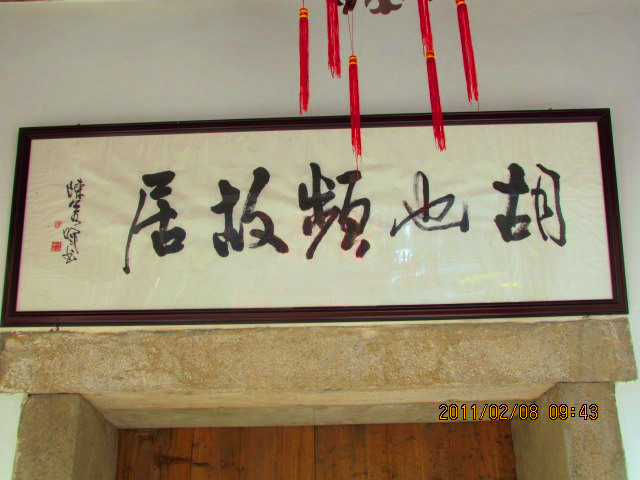 胡也頻故居
2011/02/08 09:43